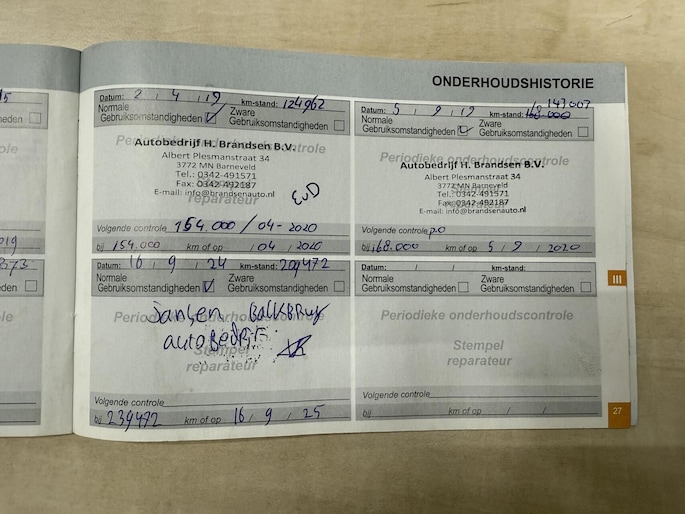 ONDERHOUDSHISTORIE
Datum: 2 / 4 / 19 km-stand: 124962
Normale Gebruiksomstandigheden
Zware Gebruiksomstandigheden
Periodieke onderhoudscontrole
Autobedrijf H. Brandsen B.V.
Albert Plesmanstraat 34
3772 MN Barneveld
Tel.: 0342-491571
Fax: 0342-492187
E-mail: info@brandsenauto.nl
Stempel
reparateur
EvD
Volgende controle 154.000 / 04-2020
bij 154.000 km of op / 04 / 2020
Datum: 5 / 9 / 19 km-stand: 168.000
147007
Normale Gebruiksomstandigheden
Zware Gebruiksomstandigheden
Periodieke onderhoudscontrole
Autobedrijf H. Brandsen B.V.
Albert Plesmanstraat 34
3772 MN Barneveld
Tel.: 0342-491571
Fax: 0342-492187
E-mail: info@brandsenauto.nl
Volgende controle p.o
bij 168.000 km of op 5 / 9 / 2020
Datum: 16 / 9 / 24 km-stand: 209472
Normale Gebruiksomstandigheden
Zware Gebruiksomstandigheden
Periodieke onderhoudscontrole
Jansen Balkbrug
autobedrijf
Stempel
reparateur
Volgende controle
bij 239472 km of op 16 / 9 / 25
Datum: / / km-stand:
Normale Gebruiksomstandigheden
Zware Gebruiksomstandigheden
Periodieke onderhoudscontrole
Stempel
reparateur
Volgende controle
bij km of op / /
III
27